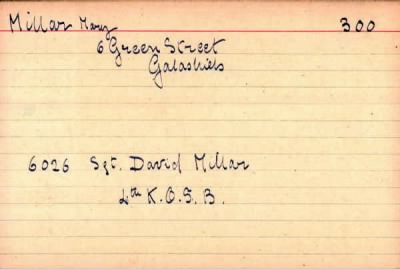 Millar Mary 300
6 Green Street
Galashiels
6026 Sgt. David Millar
4th K.O.S.B.